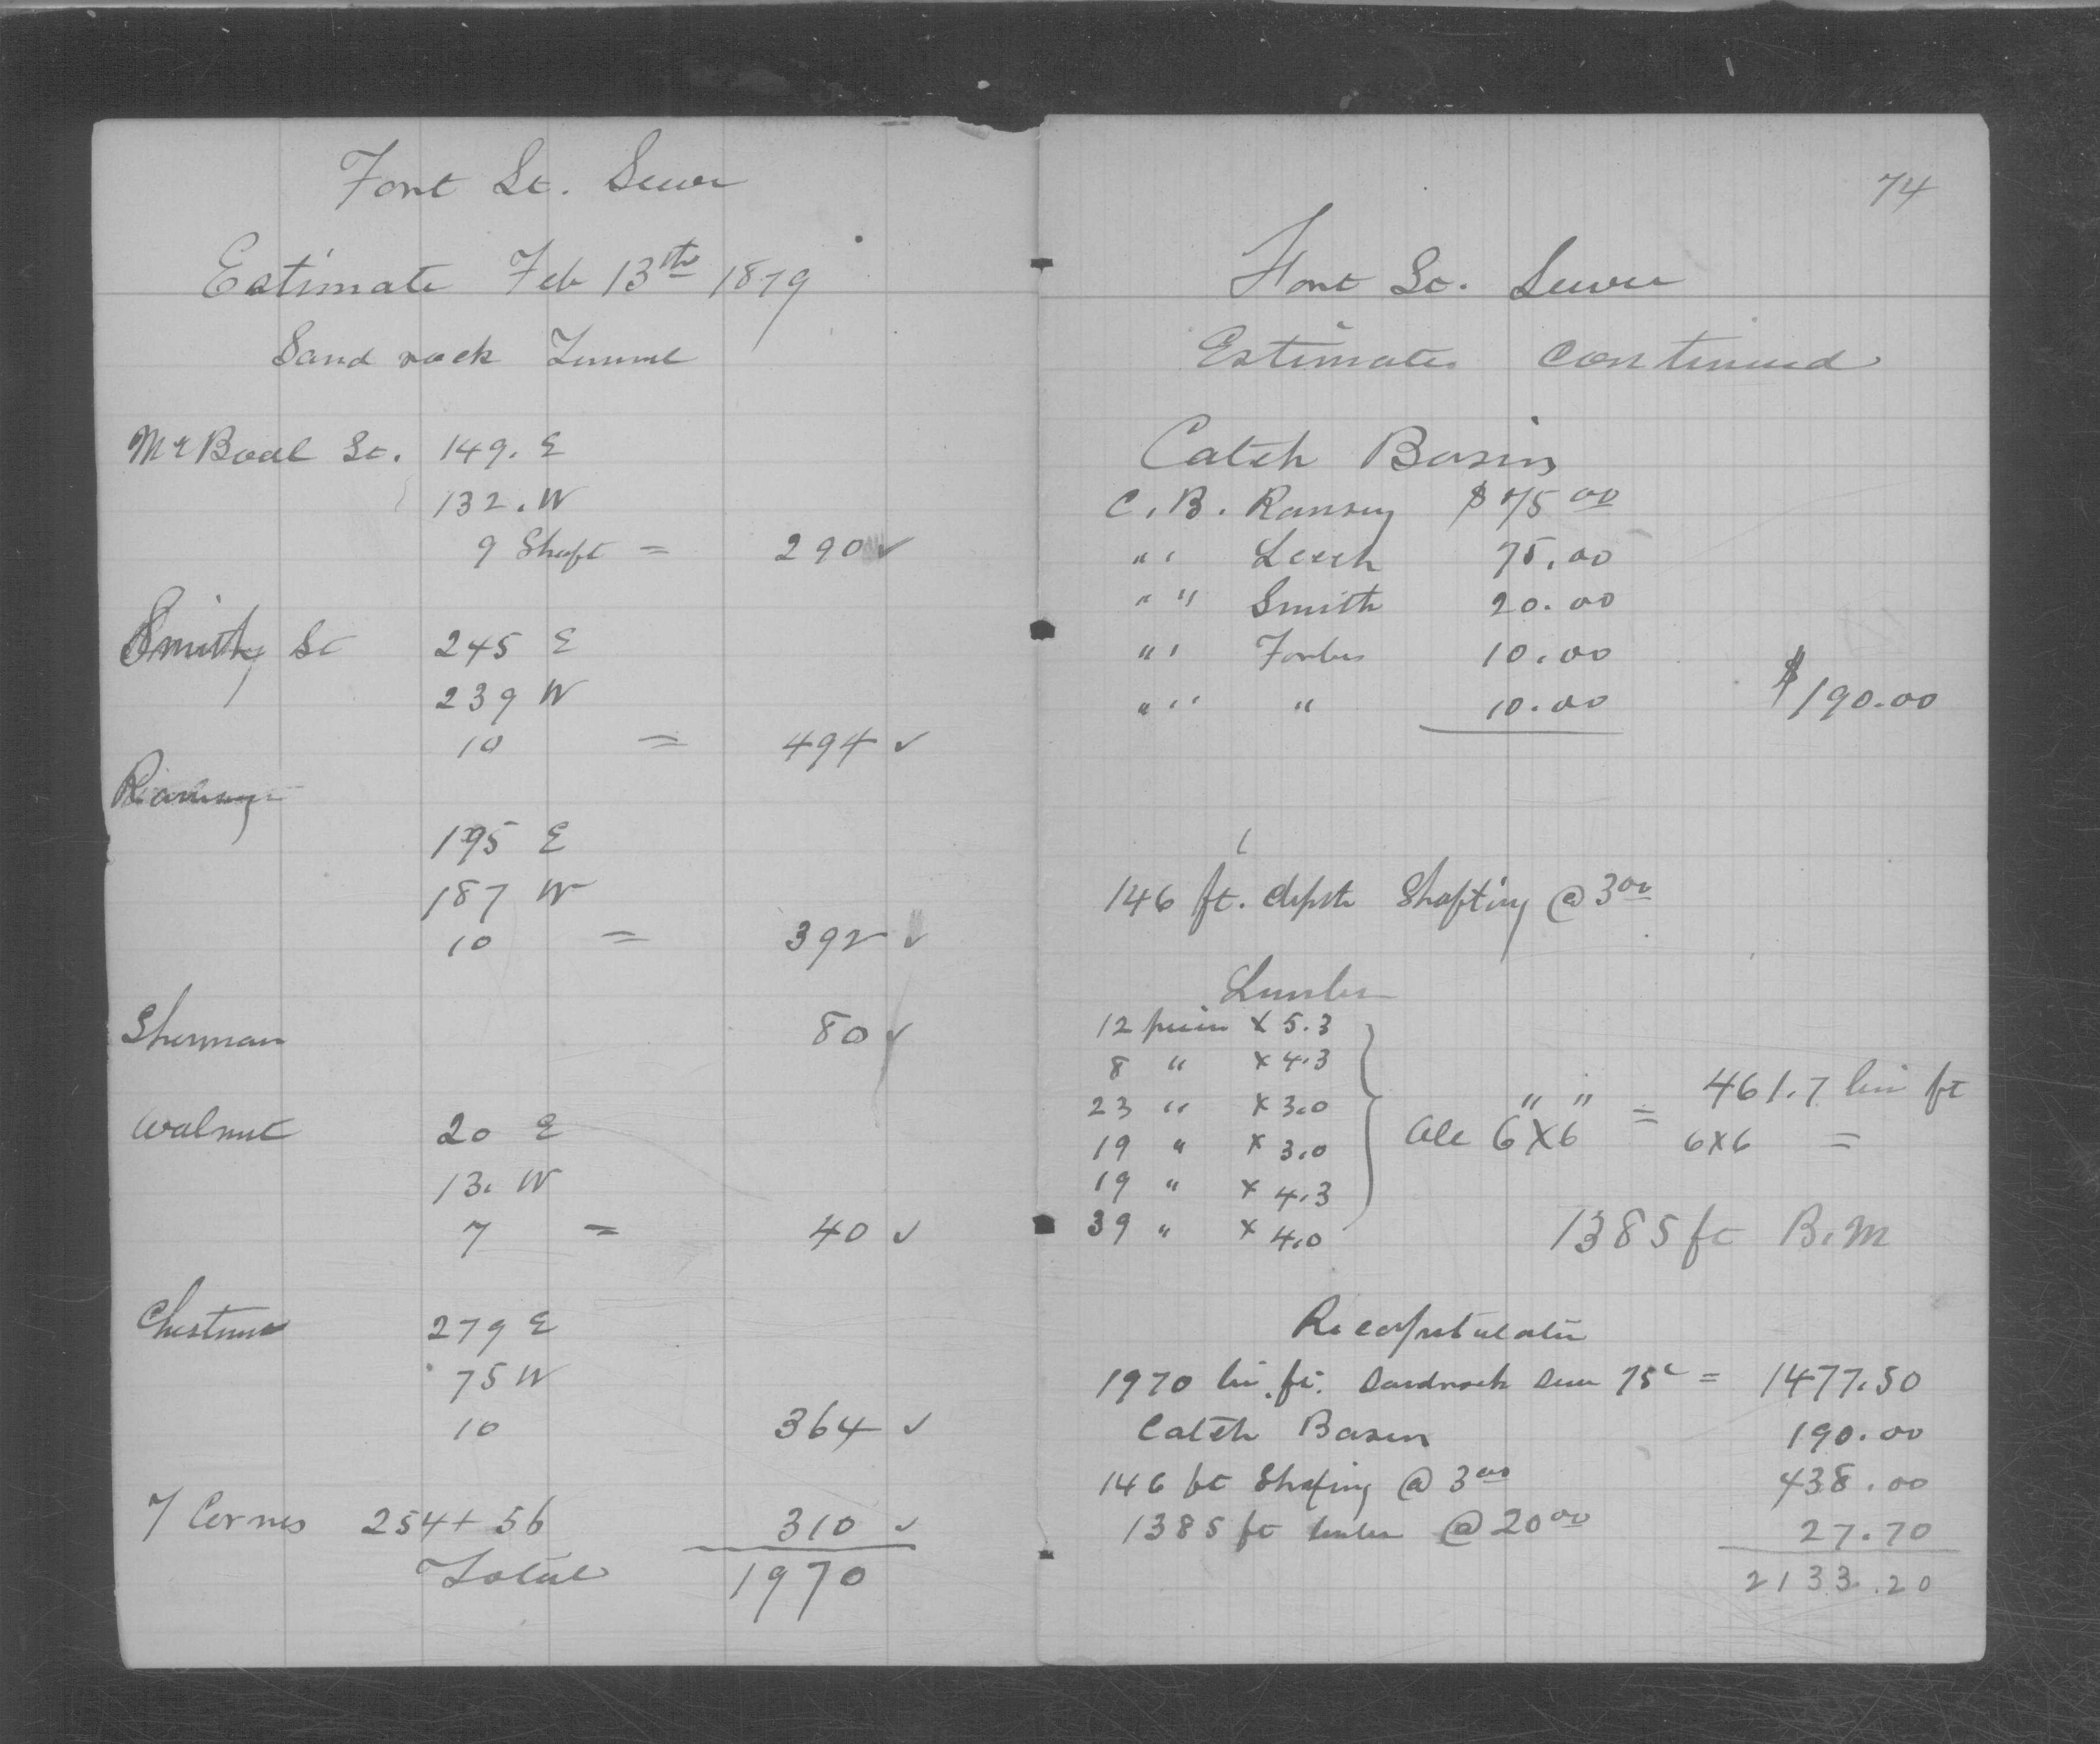 Fort St. Sewer
Estimate Feb 13th 1879
Sand rock Tunnel
McBoal St. 149. E
132. W
9 Shaft = 290 ✓
Smith St 245 E
239 W
10 = 494 ✓
Ramsey
195 E
187 W
10 = 392 ✓
Sherman 80 ✓
Walnut 20 E
13. W
7 = 40 ✓
Chestnut 279 E
75 W
10 364 ✓
7 Corners 254 + 56 310 ✓
Total 1970
74
Fort St. Sewer
Estimate continued
Catch Basin
C. B. Ramsey $75 00
" " Leech 75.00
" " Smith 20.00
" " Forbes 10.00
" " " 10.00 $190.00
146 ft. depth Shafting @ 3 00
Lumber
12 pieces x 5.3
8 " x 4.3
23 " x 3.0
19 " x 3.0
19 " x 4.3
39 " x 4.0
All 6" x 6" = 461.7 lin ft
6x6 =
1385 ft B.M
Recapitulation
1970 lin. ft. Sandrock Sewer 75c = 1477.50
Catch Basin 190.00
146 ft Shafting @ 3 00 438.00
1385 ft lumber @ 20 00 27.70
2133.20